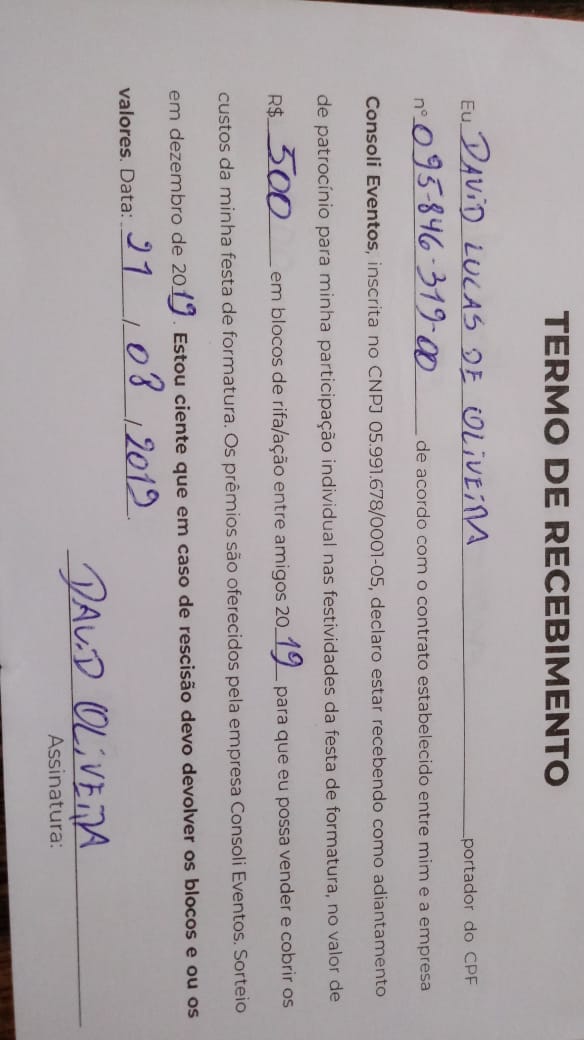 TERMO DE RECEBIMENTO
Eu DAVID LUCAS DE OLIVEIRA portador do CPF
nº 095-846-319-00 de acordo com o contrato estabelecido entre mim e a empresa
Consoli Eventos, inscrita no CNPJ 05.991.678/0001-05, declaro estar recebendo como adiantamento
de patrocínio para minha participação individual nas festividades da festa de formatura, no valor de
R$ 500 em blocos de rifa/ação entre amigos 2019 para que eu possa vender e cobrir os
custos da minha festa de formatura. Os prêmios são oferecidos pela empresa Consoli Eventos. Sorteio
em dezembro de 2019. Estou ciente que em caso de rescisão devo devolver os blocos e ou os
valores. Data: 21 / 08 / 2019.
DAVID OLIVEIRA
Assinatura: